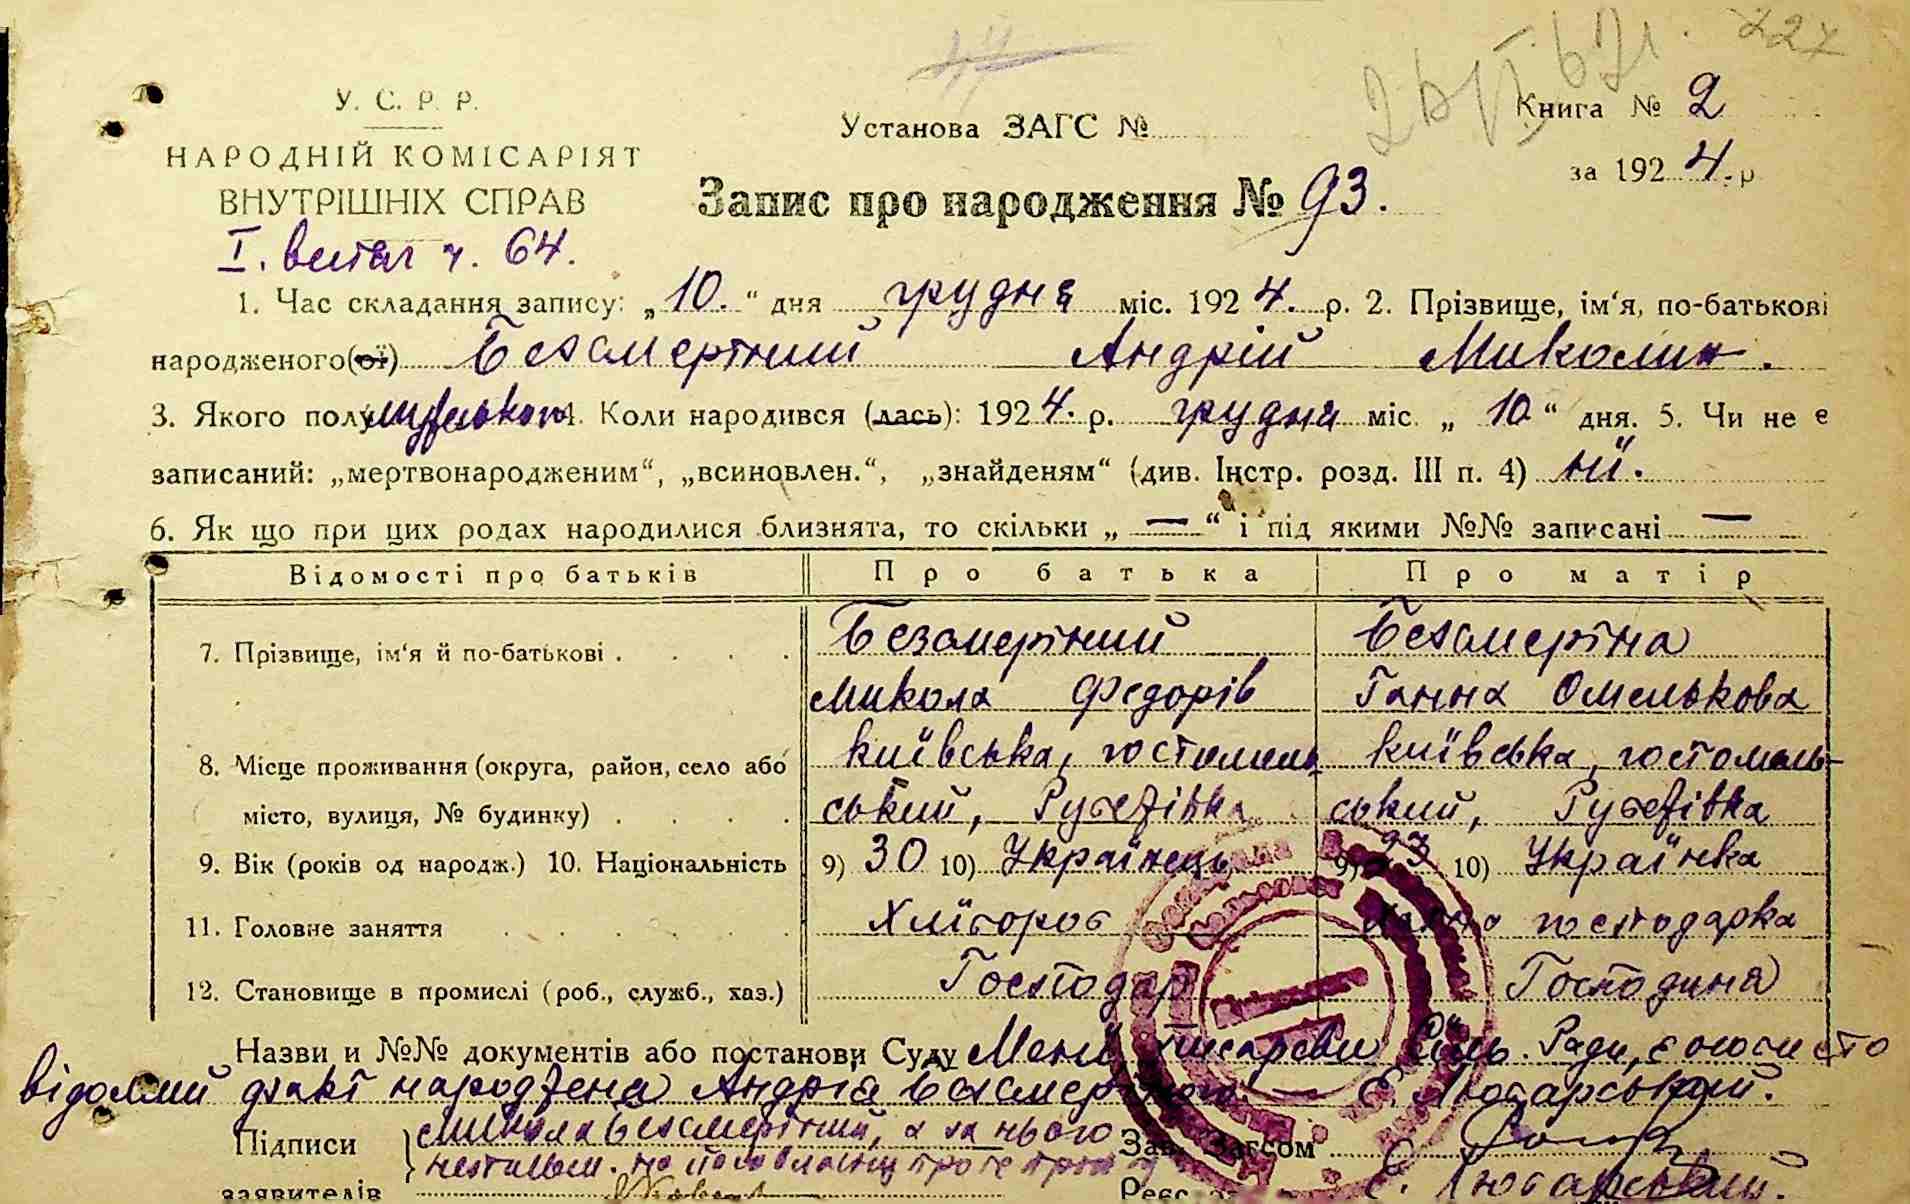 227
У. С. Р. Р.
Установа ЗАГС №
Книга № 2
НАРОДНІЙ КОМІСАРІЯТ
за 1924. р
ВНУТРІШНІХ СПРАВ
Запис про народження № 93.
I. ч. 64.
1. Час складання запису: „10.“ дня грудня міс. 1924. р. 2. Прізвище, ім‘я, по-батькові
народженого(ої) Безсмертний Андрій Миколин.
3. Якого полу мужеського 4. Коли народився (лась): 1924. р. грудня міс. „10“ дня. 5. Чи не є
записаний: „мертвонародженим“, „всиновлен.“, „знайденям“ (див. Інстр. розд. III п. 4) ні.
6. Як що при цих родах народилися близнята, то скільки „ — “ і під якими №№ записані —
Відомості про батьків Про батька Про матір
7. Прізвище, ім‘я й по-батькові . . . . Безсмертний Безсмертна
Микола Федорів Ганна Омелькова
8. Місце проживання (округа, район, село або київська, гостомель київська, гостомель-
місто, вулиця, № будинку) . . . . ський, Рубежівка ський, Рубежівка
9. Вік (років од народж.) 10. Національність 9) 30 10) Українець 9) 23 10) Українка
11. Головне заняття . . . . . Хлібороб господарка
12. Становище в промислі (роб., служб., хаз.) Господар Господиня
Назви и №№ документів або постанови Суду Мені писареви Сіль. Ради, є особисто
відомий факт народження Андрія Безсмертного. — Є. Лютарський.
Підписи Микола Безсмертний, а за нього Зав. Загсом
заявителів Реєс Є. Лютарський.